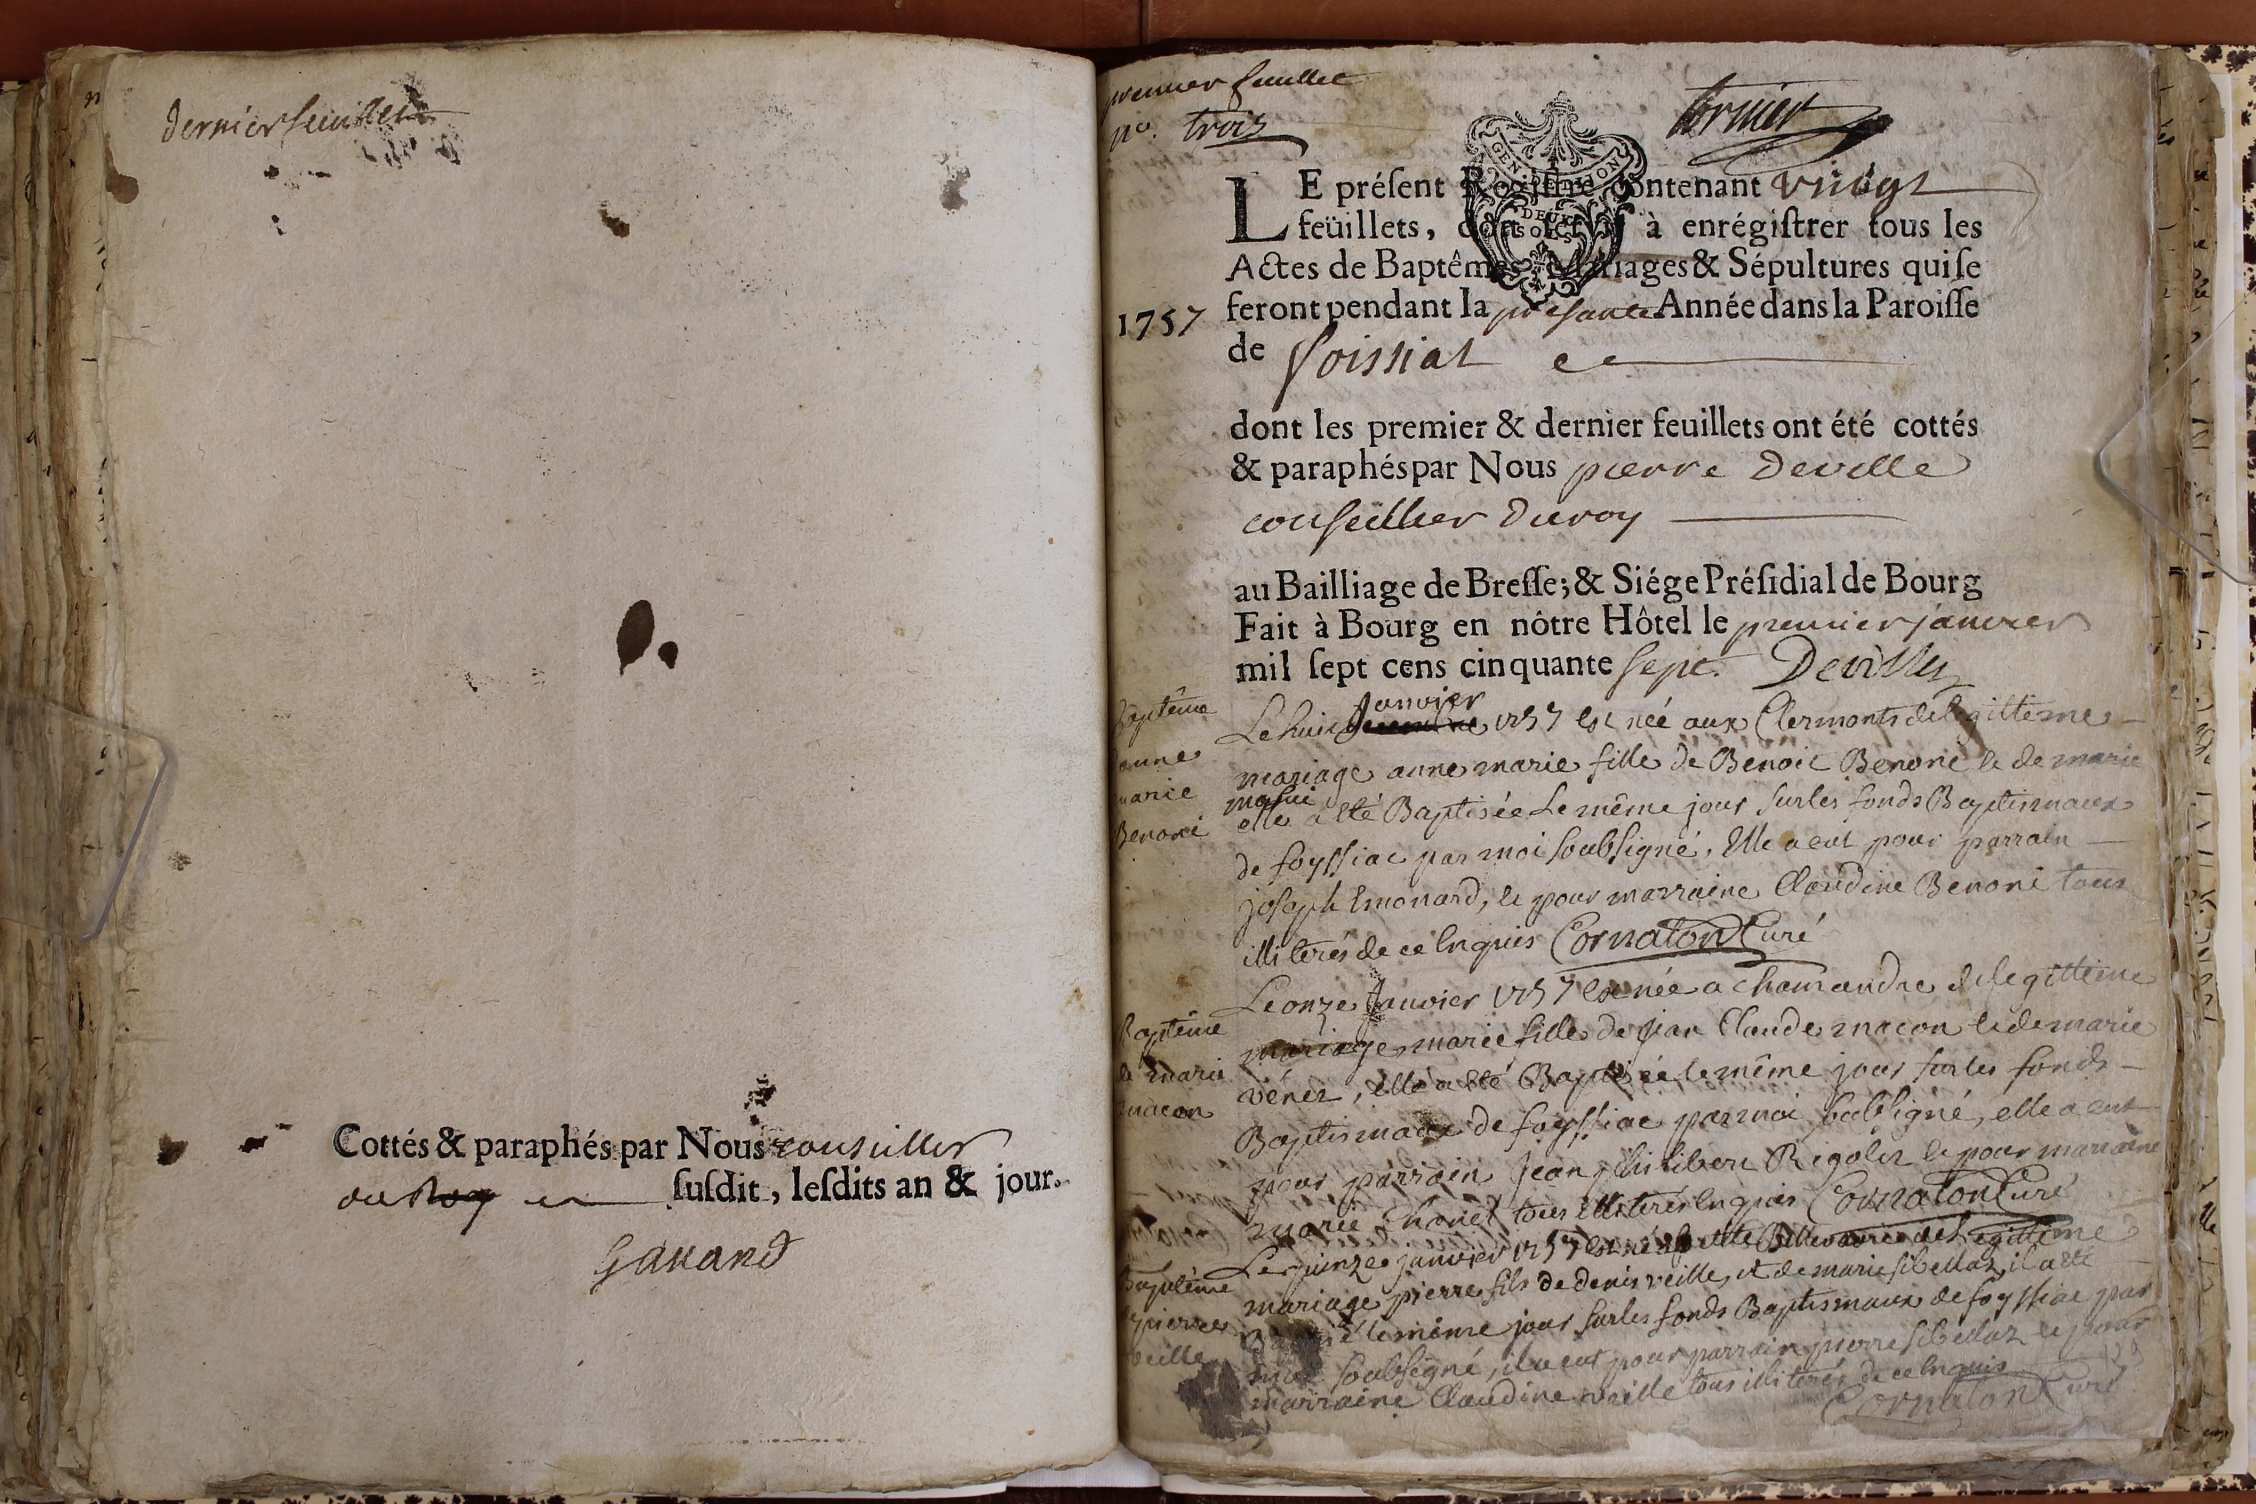 dernier feuillet
Cottés & paraphés par Nous conseiller
du Roy susdit, lesdits an & jour.
Gavand
premier feuillet
no. trois
GEN. DE DIJON
DEUX
SOLS
LE présent Registre contenant vingt
feüillets, doit servir à enrégistrer tous les
Actes de Baptêmes, Mariages & Sépultures qui se
1757 feront pendant la présante Année dans la Paroisse
de foissiat
dont les premier & dernier feuillets ont été cottés
& paraphés par Nous pierre Deville
conseillier du roy
au Bailliage de Bresse; & Siége Présidial de Bourg
Fait à Bourg en nôtre Hôtel le premier janvier
mil sept cens cinquante sept. Deville
Baptême
anne
marie
Benoni
Janvier
Le huit 1757 est née aux Clermonts de legittime
mariage anne marie fille de Benoit Benoni le de marie
masui
elle a été Baptisée Le même jour sur les fonds Baptismaux
de foyssiac par moi soubsigné, Elle a eut pour parrain
joseph Emonard, le pour marraine Claudine Benoni tous
illiterés de ce Enquis Cornaton Curé
Baptême
de marie
macon
Le onze Janvier 1757 est née a chamandre de legittime
mariage marie fille de jean Claude macon le de marie
vénez, elle a été Baptisée le même jour sur les fonds
Baptismaux de foyssiac par moi soubsigné, elle a eut
pour parrain Jean philibert Rigolet le pour marraine
marie Chanel tous illiterés Enquis Cornaton Curé
Baptême
de pierre
veille
Le quinze janvier 1757 est né de Legittime
mariage pierre fils de denis veille, et de marie sibellaz, il a été
Baptisé le même jour sur les fonds Baptismaux de foyssiac par
moi soubsigné, il a eut pour parrain pierre sibellaz le pour
marraine Claudine veille tous illiterés de ce Enquis
Cornaton Curé